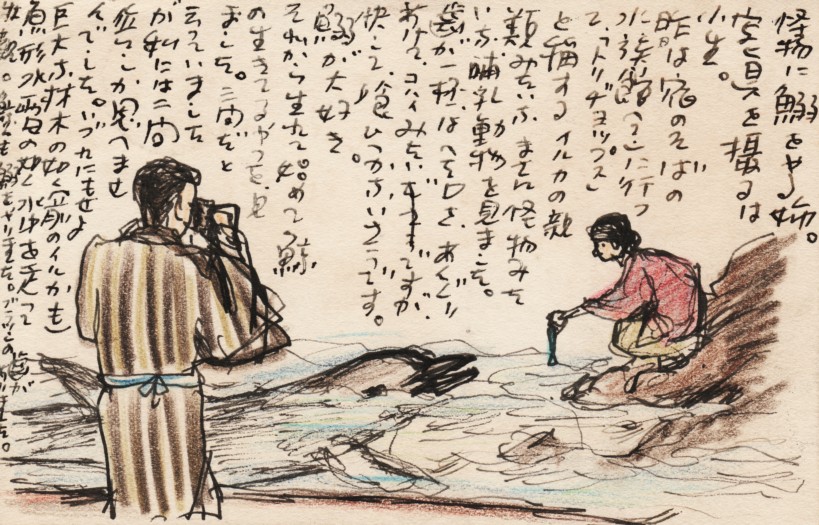 怪物に鰯をやる姉。
写真を撮るは
小生。
昨は宿のそばの
水族館へ行つ
と稱するイルカの親
類みたいな まさに怪物みた
いな哺乳動物を見ました。
歯が一杯はへた口を、あくびに
あけて、コハイみたいですが、
決して喰ひつかないさうです。
鰯が大好き。
それから生れて始めて鯨
の生きてるやつを見
ました。二間だと
云つていました
が私には一間
位にしか思へませ
んでした。いづれにせよ
巨大な材木の如く(前のイルカも)
魚形水雷の如く水中を走つて
壮観。鰯をやりました。歯がありました。